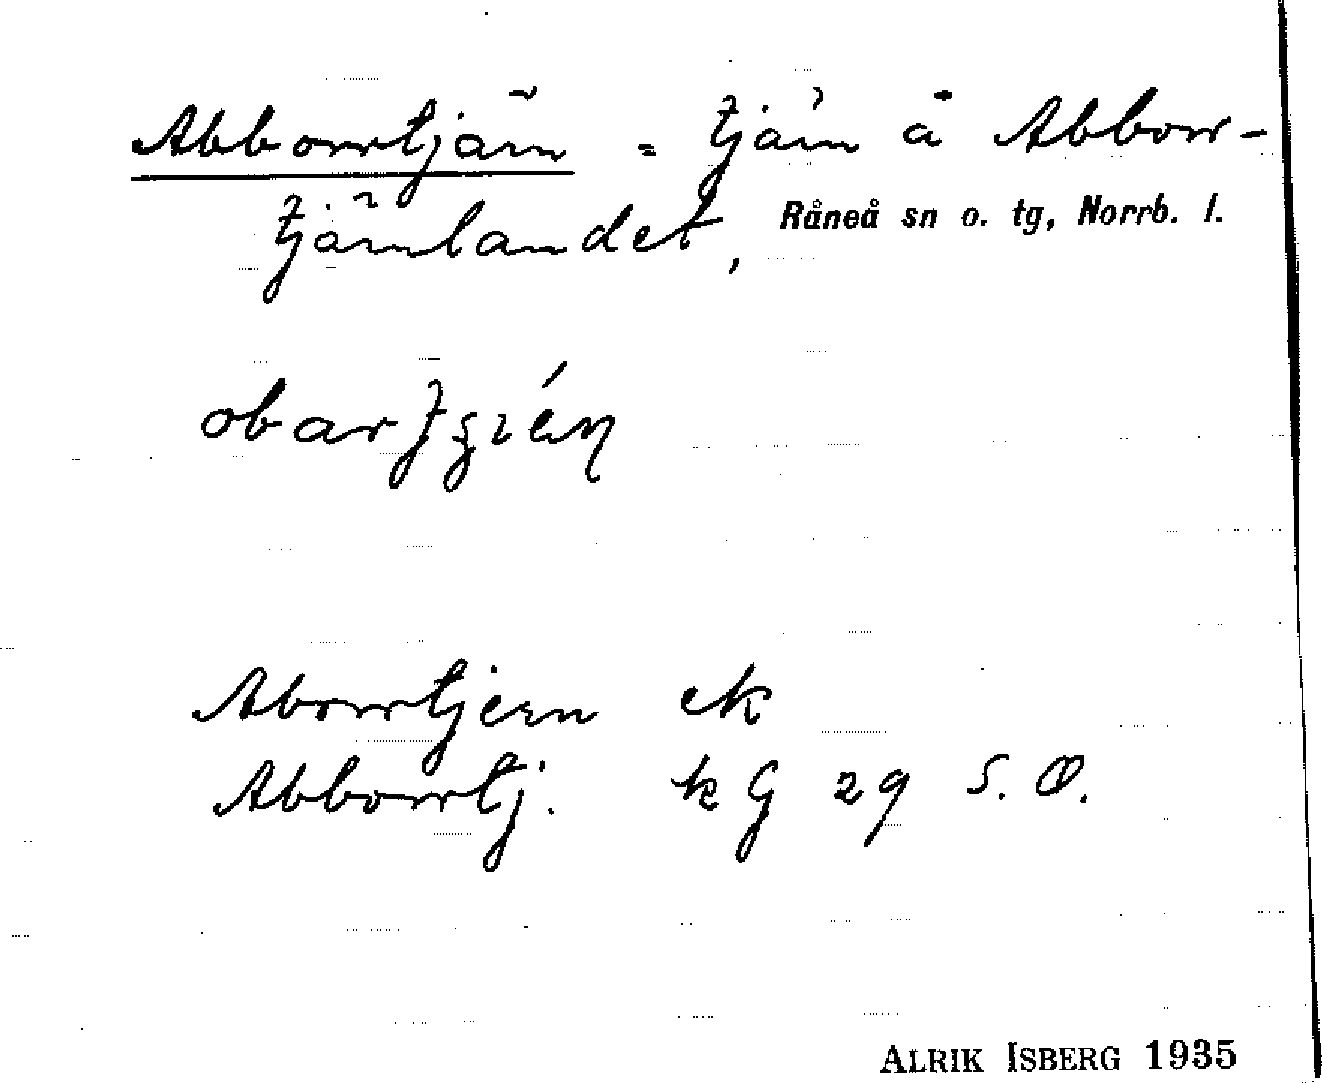 Abborrtjärn = tjärn å Abborr-
tjärnlandet, Råneå sn o. tg, Norrb. l.
Aborrtjern ek
Abborrtj. kG 29 S.O.
ALRIK ISBERG 1935